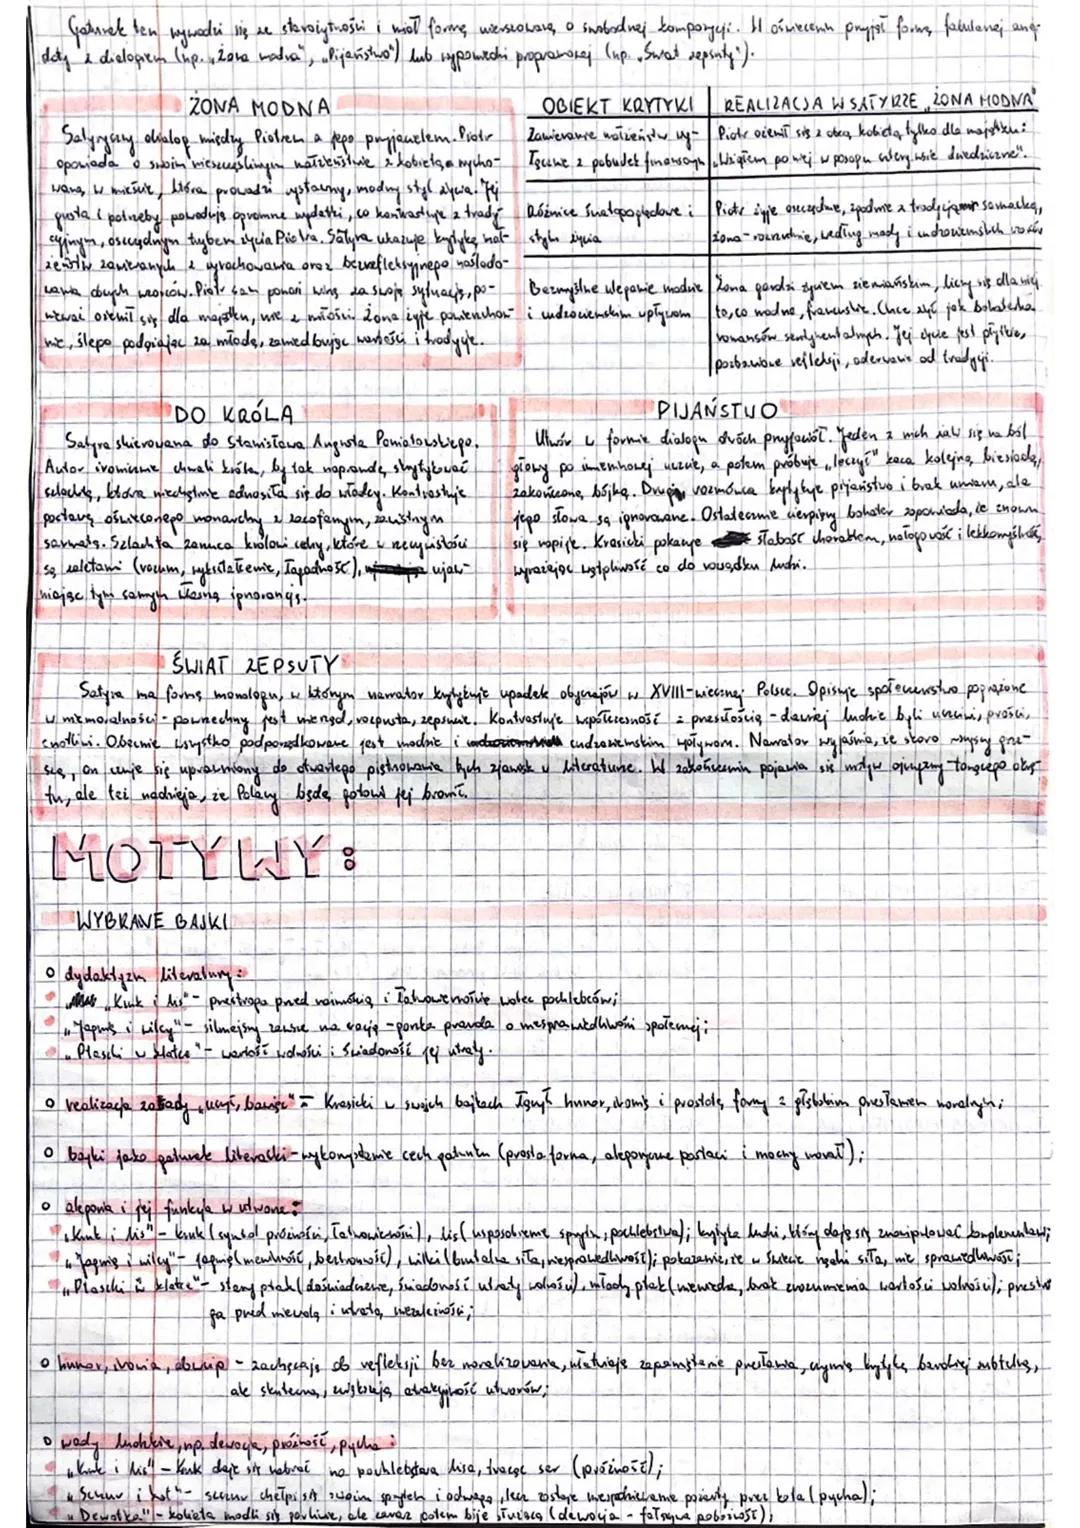 Gatunek ten wywodzi się ze starożytności i miał formę wierszowaną, o swobodnej kompozycji. W oświeceniu przyjął formę fabularnej aneg-
doty z dialogiem (np. „Żona modna", „Pijaństwo") lub wypowiedzi programowej (np. „Świat zepsuty").
ŻONA MODNA
Satyryczny dialog między Piotrem a jego przyjacielem. Piotr
opowiada o swoim nieszczęśliwym małżeństwie z kobietą wycho-
waną w mieście, która prowadzi wystawny, modny styl życia. Jej
gusta i potrzeby powodują ogromne wydatki, co kontrastuje z trady-
cyjnym, oszczędnym trybem życia Piotra. Satyra ukazuje krytykę mał-
żeństw zawieranych z wyrachowania oraz bezrefleksyjnego naślado-
wania obcych wzorców. Piotr sam ponosi winę za swoją sytuację, po-
nieważ ożenił się dla majątku, nie z miłości. Żona żyje powierzchow-
nie, ślepo podążając za modą, zaniedbując wartości i tradycje.
OBIEKT KRYTYKI
REALIZACJA W SATYRZE „ŻONA MODNA"
Zawieranie małżeństw wy-
łącznie z pobudek finansowych
Piotr ożenił się z obcą kobietą tylko dla majątku:
„Wziąłem po niej w posagu cztery wsie dziedziczne".
Różnice światopoglądowe i
stylu życia
Piotr żyje oszczędnie, zgodnie z tradycjami sarmacką,
żona - rozrzutnie, według mody i cudzoziemskich wzorów
Bezmyślne uleganie modzie
i cudzoziemskim wpływom
Żona gardzi życiem ziemiańskim, liczy się dla niej
to, co modne, francuskie. Chce żyć jak bohaterka
romansów sentymentalnych. Jej życie jest płytkie,
pozbawione refleksji, oderwane od tradycji.
DO KRÓLA
Satyra skierowana do Stanisława Augusta Poniatowskiego.
Autor ironicznie chwali króla, by tak naprawdę skrytykować
szlachtę, która niechętnie odnosiła się do władcy. Kontrastuje
postawę oświeconego monarchy z zacofanym, zawistnym
sarmatą. Szlachta zarzuca królowi cechy, które w rzeczywistości
są zaletami (rozum, wykształcenie, łagodność), ujaw-
niając tym samym własną ignorancję.
PIJAŃSTWO
Utwór w formie dialogu dwóch przyjaciół. Jeden z nich żali się na ból
głowy po imieninowej uczcie, a potem próbuje „leczyć" kaca kolejną biesiadą,
zakończoną bójką. Drugi rozmówca krytykuje pijaństwo i brak umiaru, ale
jego słowa są ignorowane. Ostatecznie cierpiący bohater zapowiada, że znowu
się napije. Krasicki pokazuje słabość charakteru, nałogowość i lekkomyślność,
wyrażając wątpliwość co do rozsądku ludzi.
ŚWIAT ZEPSUTY
Satyra ma formę monologu, w którym narrator krytykuje upadek obyczajów w XVIII-wiecznej Polsce. Opisuje społeczeństwo pogrążone
w niemoralności - powszechny jest nierząd, rozpusta, zepsucie. Kontrastuje współczesność z przeszłością - dawniej ludzie byli uczciwi, prości,
cnotliwi. Obecnie wszystko podporządkowane jest modzie i cudzoziemskim wpływom. Narrator wyjaśnia, że skoro wszyscy grze-
szą, on czuje się uprawniony do otwartego piętnowania tych zjawisk w literaturze. W zakończeniu pojawia się motyw ojczyzny-tonącego okrę-
tu, ale też nadzieja, że Polacy będą gotowi jej bronić.
MOTYWY:
WYBRANE BAJKI
dydaktyzm literatury:
„Kruk i lis" - przestroga przed naiwnością i łatwowiernością wobec pochlebców;
„Jagnię i wilcy" - silniejszy zawsze ma rację - gorzka prawda o niesprawiedliwości społecznej;
„Ptaszki w klatce" - wartość wolności i świadomość jej utraty.
realizacja zasady „ucząc, bawiąc" - Krasicki w swoich bajkach łączył humor, ironię i prostotę formy z głębokim przesłaniem moralnym;
bajki jako gatunek literacki - wykorzystanie cech gatunku (prosta forma, alegoryczne postaci i mocny morał);
alegoria i jej funkcja w utworze:
„Kruk i lis" - kruk (symbol próżności, łatwowierności), lis (uosobienie sprytu, pochlebstwa); krytyka ludzi, którzy dają się zmanipulować komplementami;
„Jagnię i wilcy" - jagnię (niewinność, bezbronność), wilki (brutalna siła, niesprawiedliwość); pokazanie, że w świecie rządzi siła, nie sprawiedliwość;
„Ptaszki w klatce" - stary ptak (doświadczenie, świadomość utraty wolności), młody ptak (niewiedza, brak zrozumienia wartości wolności); przestro-
ga przed niewolą i utratą niezależności;
humor, ironia, dowcip - zachęcają do refleksji bez moralizowania, ułatwiają zapamiętanie przesłania, czynią krytykę bardziej subtelną,
ale skuteczną, zwiększają atrakcyjność utworów;
wady ludzkie, np. dewocja, próżność, pycha:
„Kruk i lis" - kruk daje się nabrać na pochlebstwa lisa, tracąc ser (próżność);
„Szczur i kot" - szczur chełpi się swoim sprytem i odwagą, lecz zostaje niespodziewanie pożarty przez kota (pycha);
„Dewotka" - kobieta modli się gorliwie, ale zaraz potem bije służącą (dewocja - fałszywa pobożność);